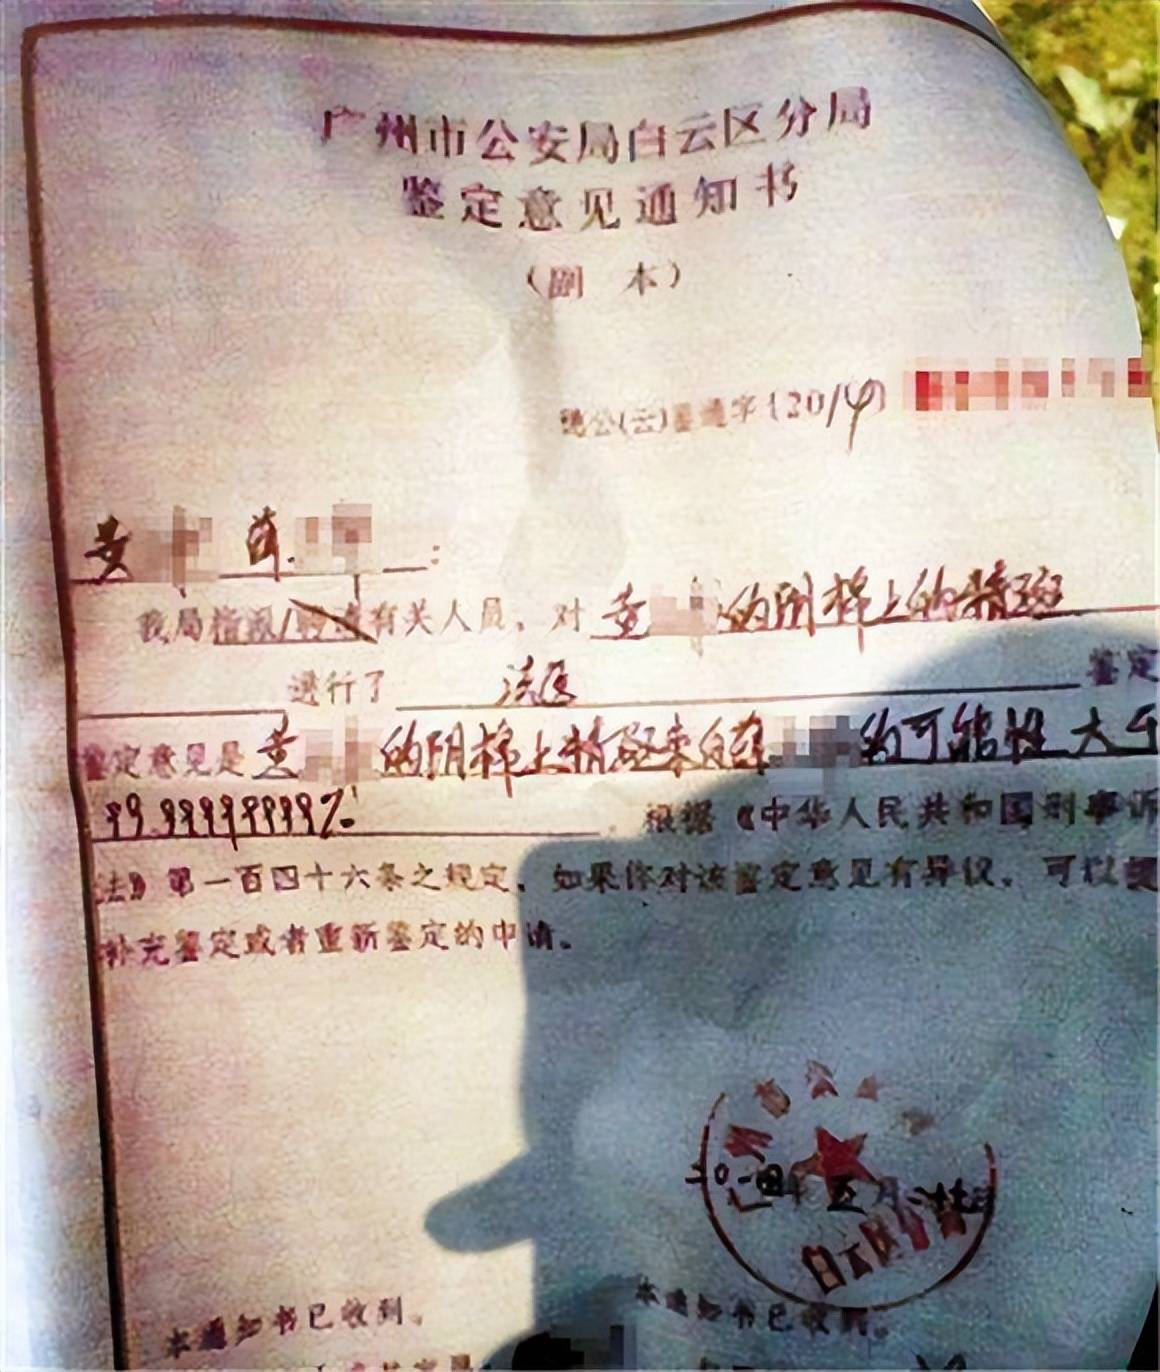 广州市公安局白云区分局
鉴定意见通知书
（副 本）
穗公(云)鉴通字〔2014〕
黄
我局指派/聘请有关人员，对 黄 的阴棉上的精斑
进行了 法医 鉴定
鉴定意见是 黄 的阴棉上精斑来自薛 的可能性大于
99.99999999%
。根据《中华人民共和国刑事诉
法》第一百四十六条之规定，如果你对该鉴定意见有异议，可以提
补充鉴定或者重新鉴定的申请。
二〇一四年五月二十七日
白云区分局
本通知书已收到。
本通知书已收到。